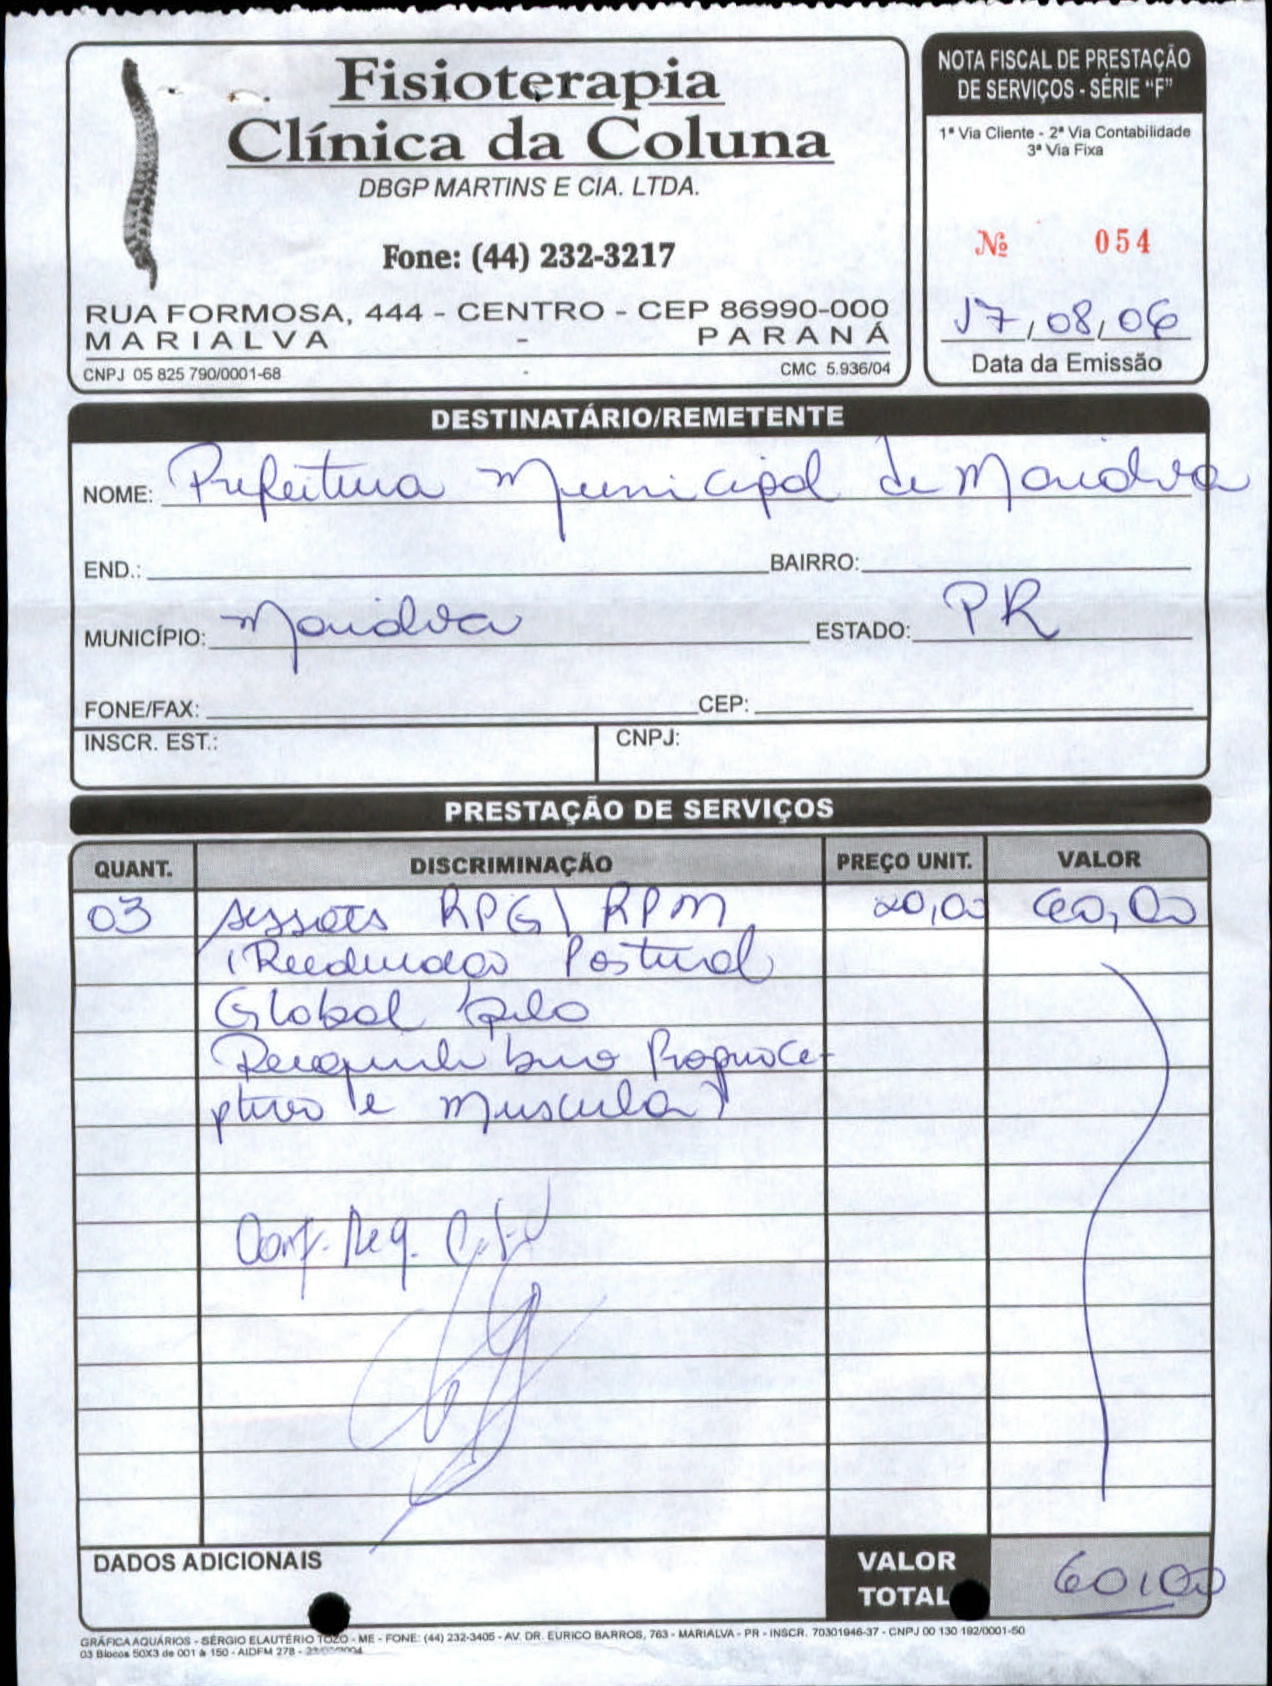 Fisioterapia
Clínica da Coluna
DBGP MARTINS E CIA. LTDA.
Fone: (44) 232-3217
RUA FORMOSA, 444 - CENTRO - CEP 86990-000
MARIALVA - PARANÁ
CNPJ 05 825 790/0001-68 CMC 5.936/04
NOTA FISCAL DE PRESTAÇÃO
DE SERVIÇOS - SÉRIE "F"
1ª Via Cliente - 2ª Via Contabilidade
3ª Via Fixa
Nº 054
17/08/06
Data da Emissão
DESTINATÁRIO/REMETENTE
NOME: Prefeitura Municipal de Marialva
END.: BAIRRO:
MUNICÍPIO: Marialva ESTADO: PR
FONE/FAX: CEP:
INSCR. EST.: CNPJ:
PRESTAÇÃO DE SERVIÇOS
QUANT. DISCRIMINAÇÃO PREÇO UNIT. VALOR
03 sessões RPG\ RPM 20,00 60,00
(Reeducação Postural
Global pelo
Reequilibrio Propioce-
ptivo e Muscular)
Conf. Req.
DADOS ADICIONAIS
VALOR
TOTAL 60,00
GRÁFICA AQUÁRIOS - SÉRGIO ELAUTÉRIO TOZO - ME - FONE: (44) 232-3405 - AV. DR. EURICO BARROS, 763 - MARIALVA - PR - INSCR. 70301946-37 - CNPJ 00 130 192/0001-50
03 Blocos 50X3 de 001 à 150 - AIDFM 278 -